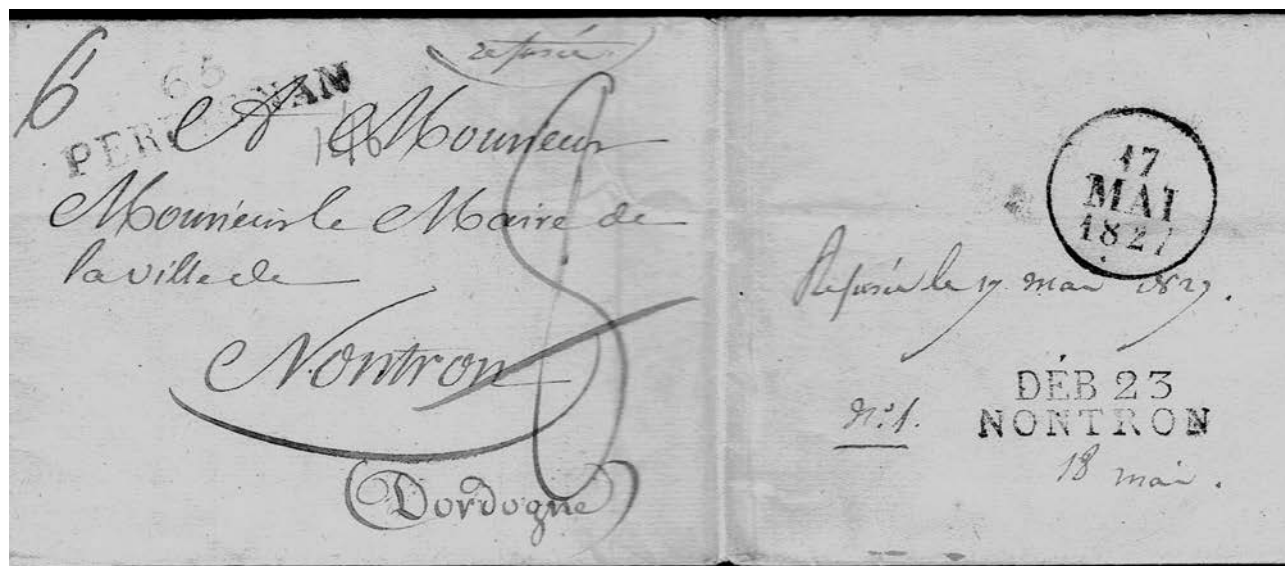 6
65
PERPIGNAN
refusée
146
A Monsieur
Monsieur le Maire de
la ville de
Nontron
(Dordogne)
17
MAI
1827
Refusée le 17 mai 1827.
N.º 1.
DÉB 23
NONTRON
18 mai.